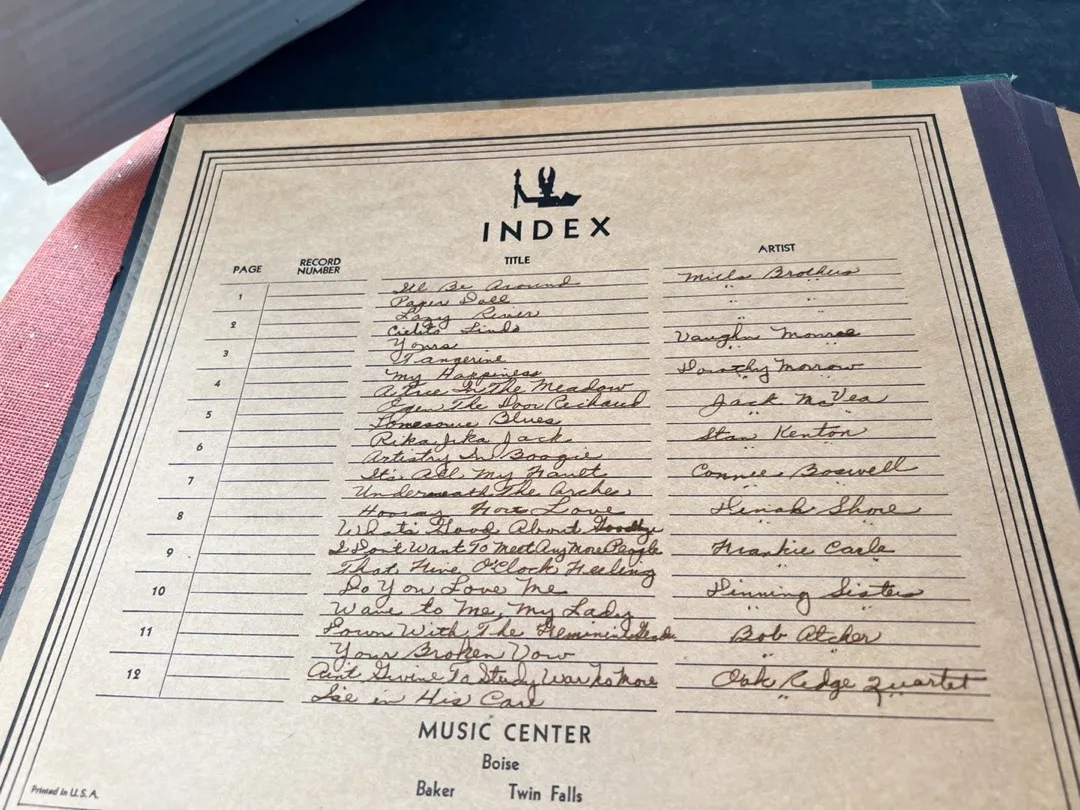 INDEX
PAGE RECORD NUMBER TITLE ARTIST
I'll Be Around Mills Brothers
1 Paper Doll " "
Lazy River " "
2 Cielito Lindo " "
Yours Vaughn Monroe
3 Tangerine " "
My Happiness Dorothy Morrow
4 A Tree In The Meadow " "
Open The Door Richard Jack McVea
5 Lonesome Blues " "
Rika Jika Jack Stan Kenton
6 Artistry In Boogie " "
It's All My Fault Connie Boswell
7 Underneath The Arches " "
Hooray For Love Dinah Shore
8 What's Good About Goodbye " "
I Don't Want To Meet Any More People Frankie Carle
9 That Five O'Clock Feeling " "
Do You Love Me Dinning Sisters
10 Wave to Me, My Lady " "
Down With The Feminine Bob Atcher
11 Your Broken Vow " "
Aint Givine To Study War No More Oak Ridge Quartet
12 I'se in His Care " "
MUSIC CENTER
Boise
Baker Twin Falls
Printed in U.S.A.